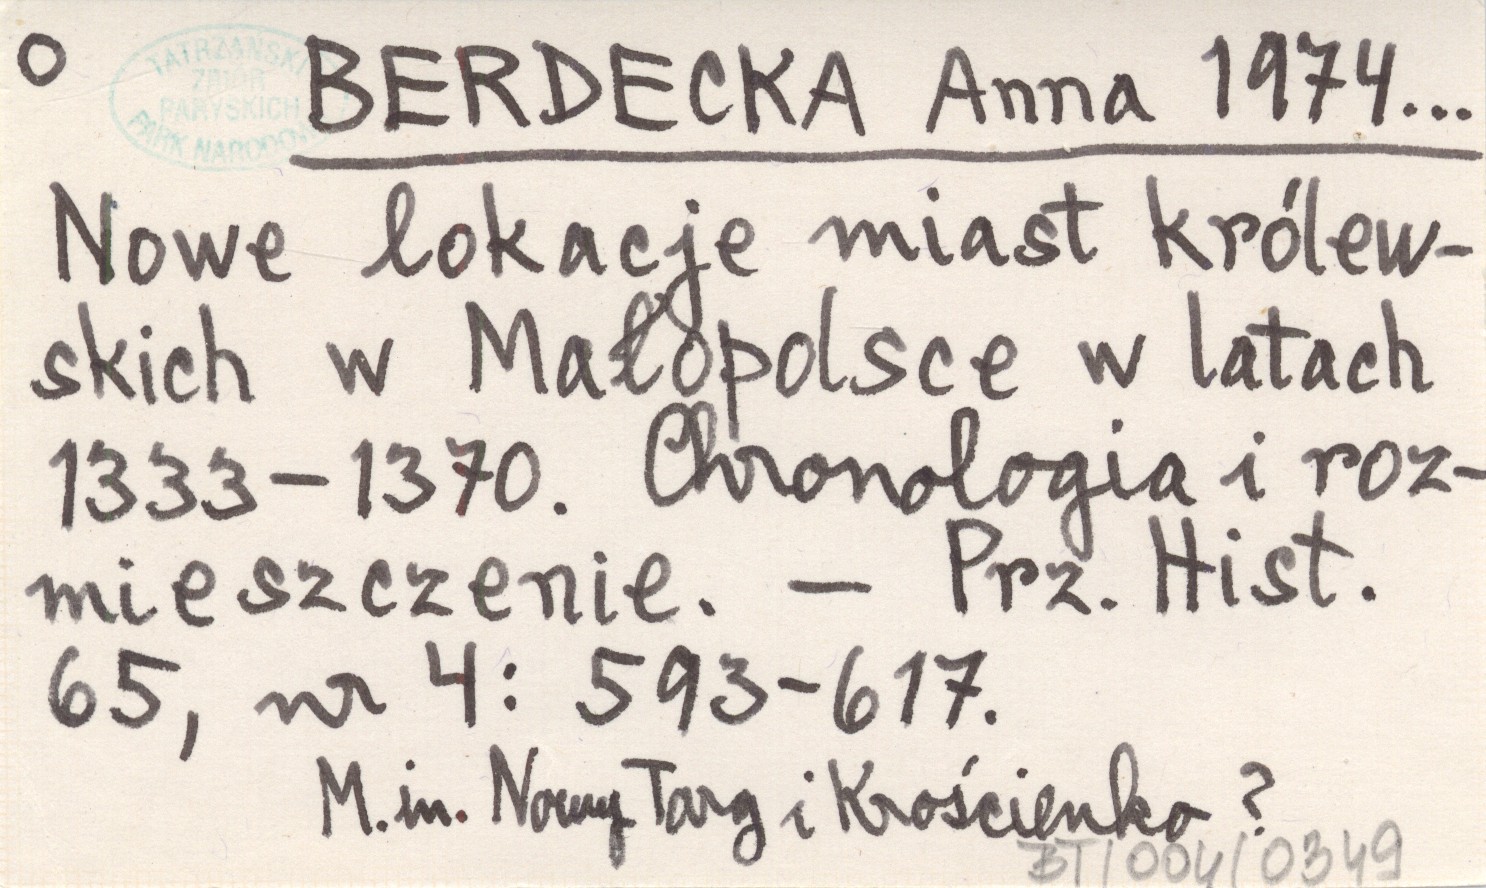 o
TATRZAŃSKI
ZBIÓR
PARYSKICH
PARK NARODOWY
BERDECKA Anna 1974...
Nowe lokacje miast królew-
skich w Małopolsce w latach
1333-1370. Chronologia i roz-
mieszczenie. — Prz. Hist.
65, nr 4: 593-617.
M.in. Nowy Targ i Krościenko?
BT/004/0349